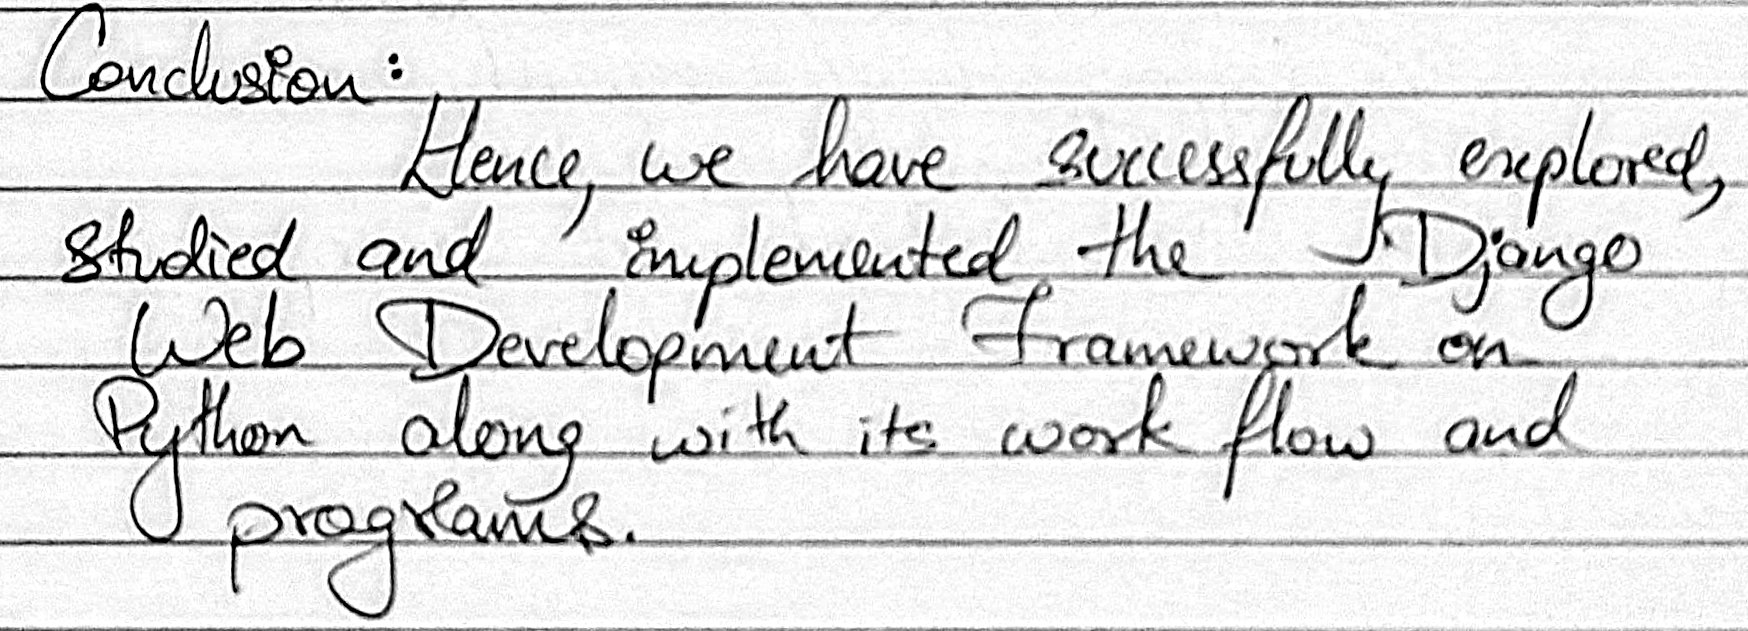 Conclusion:
Hence, we have successfully explored,
studied and implemented the Django
Web Development Framework on
Python along with its work flow and
programs.